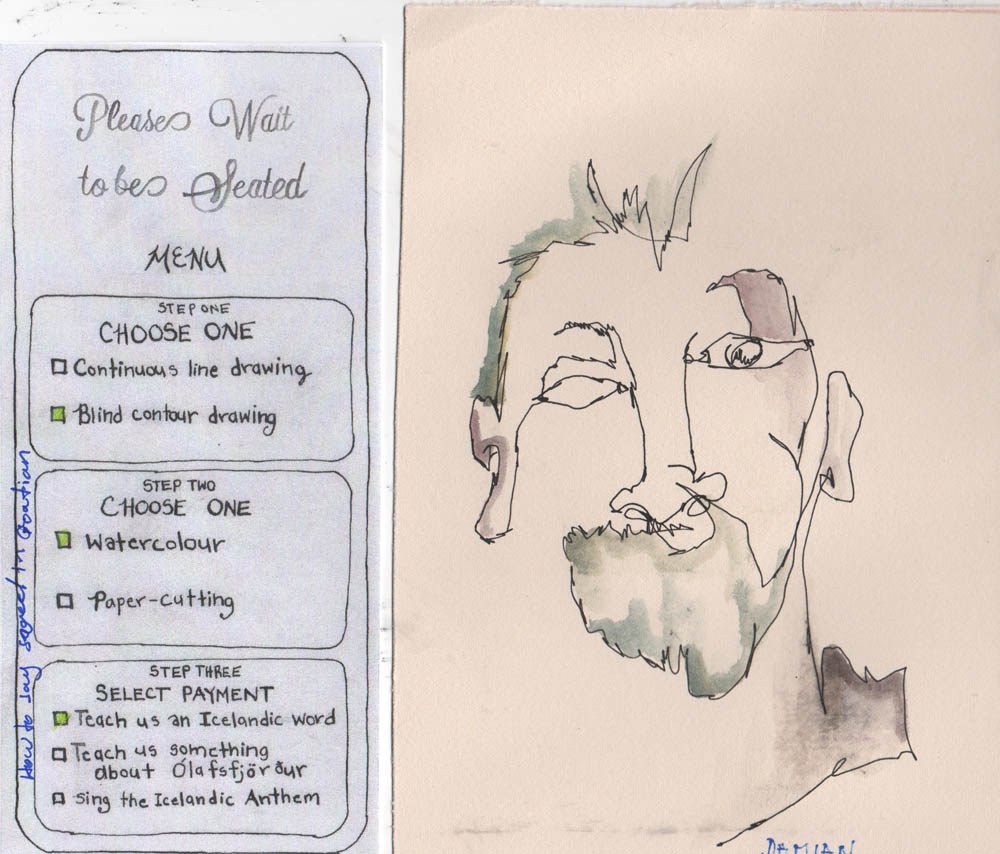 Please Wait
to be Seated
MENU
STEP ONE
CHOOSE ONE
Continuous line drawing
Blind contour drawing
STEP TWO
CHOOSE ONE
Watercolour
Paper-cutting
STEP THREE
SELECT PAYMENT
Teach us an Icelandic word
Teach us something
about Ólafsfjörður
sing the Icelandic Anthem
How to say in Croatian
DAMIAN